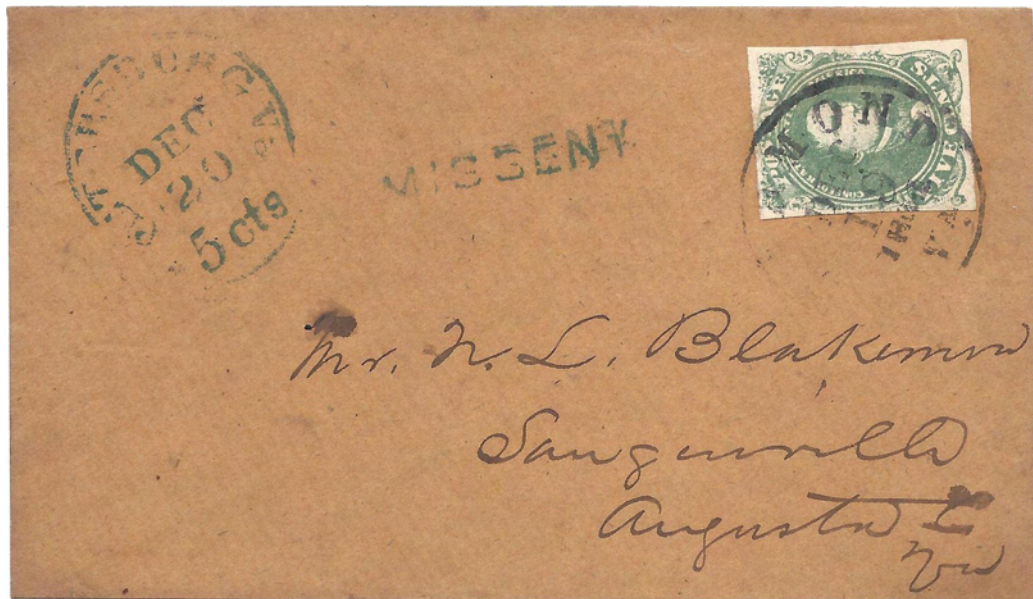 TERSBURG Va.
DEC
20
5 cts
MISSENT
FIVE CENTS
MOND
VA.
Mr. N. L. Blakemore
Sangerville
Augusta Co
Va